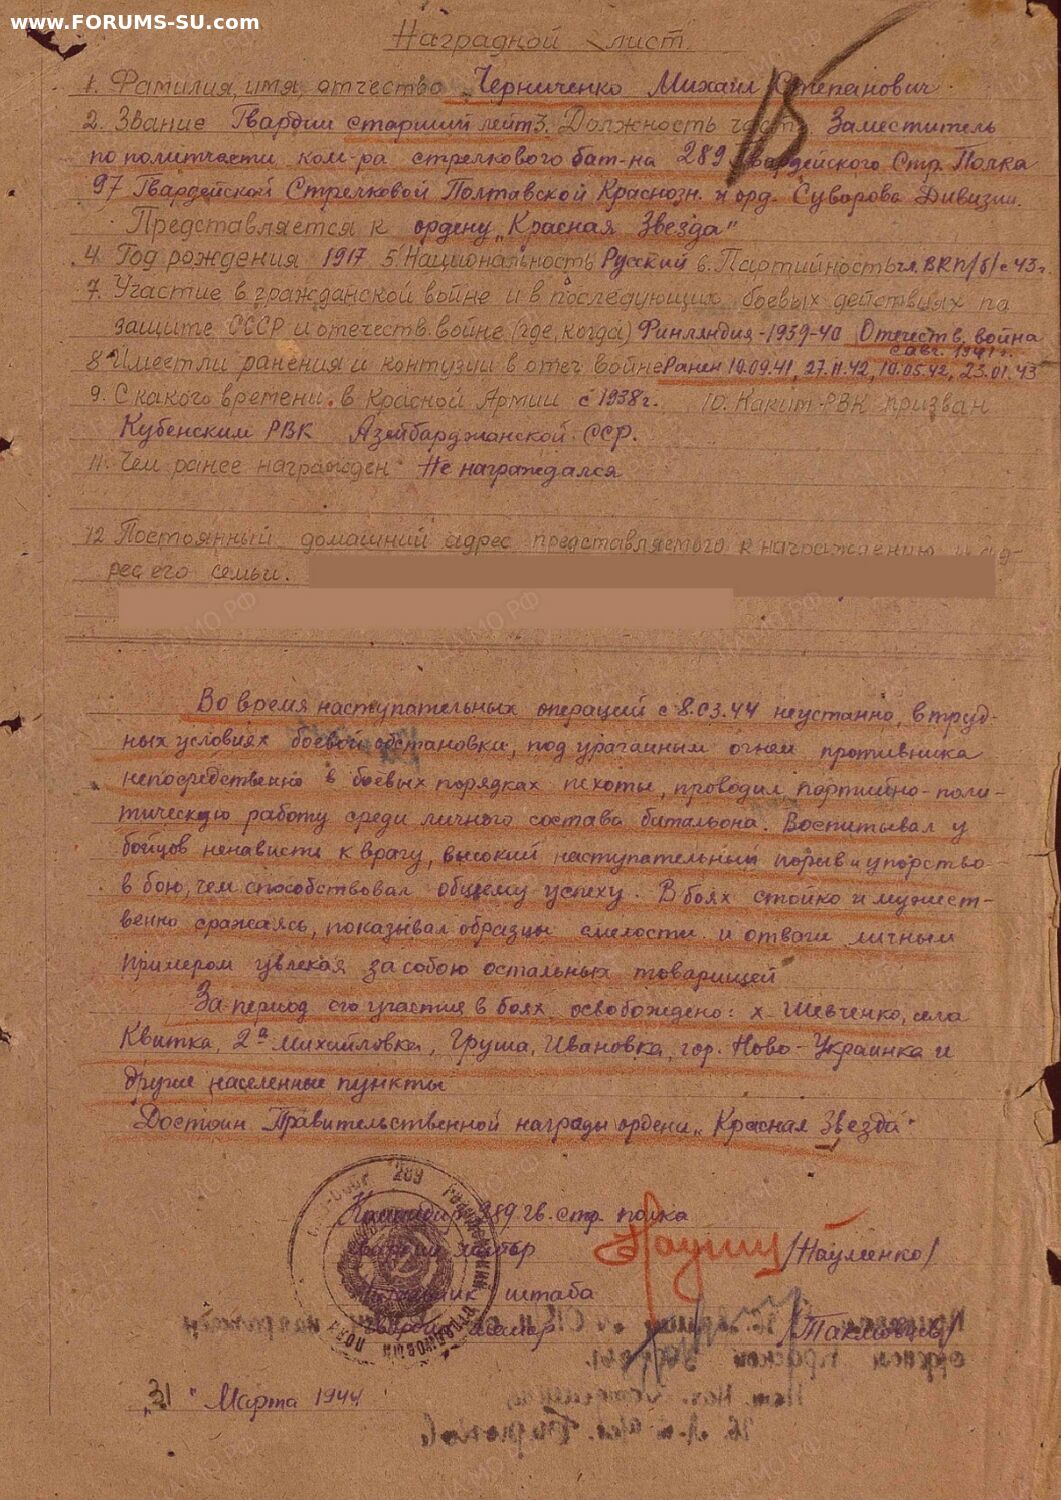 www.FORUMS-SU.com
Наградной лист
1. Фамилия, имя, отчество Черниченко Михаил Степанович
2. Звание Гвардии старший лейт 3. Должность часть Заместитель
по политчасти ком-ра стрелкового бат-на 289 Гвардейского Стр. Полка
97 Гвардейской Стрелковой Полтавской Краснозн. и орд. Суворова Дивизии.
Представляется к ордену „Красная Звезда"
4. Год рождения 1917 5. Национальность Руский 6. Партийность чл. ВКП/б/ с 43 г.
7. Участие в гражданской войне и в последующих боевых действиях по
защите СССР и отечеств. войне (где, когда) Финляндия - 1939-40 Отечеств. война
с авг. 1941 г.
8. Имеет ли ранения и контузии в отеч войне Ранен 10.09.41, 27.11.42, 10.05.42, 23.01.43
9. С какого времени в Красной Армии с 1938 г. 10. Каким РВК призван
Кубенским РВК Азейбарджанской ССР.
11. Чем ранее награжден Не награждался
12 Постоянный домашний адрес представляемого к награждению и ад-
рес его семьи.
Во время наступательных операций с 8.03.44 неустанно, в труд-
ных условиях боевой обстановки, под ураганным огнем противника
непосредственно в боевых порядках пехоты, проводил партийно-поли-
тическую работу среди личного состава батальона. Воспитывал у
бойцов ненависть к врагу, высокий наступательный порыв и упорство
в бою, чем способствовал общему успеху. В боях стойко и мужест-
венно сражаясь, показывал образцы смелости и отваги личным
примером увлекая за собою остальных товарищей
За период его участия в боях освобождено: х. Шевченко, села
Квитка, 2а Михайловка, Груша, Ивановка, гор. Ново-Украинка и
другие населенные пункты
Достоин Правительственной награды ордена „Красная Звезда"
289
Командир 289 гв. стр. полка
гвардии майор /Науменко/
Начальник штаба
гвардии майор
„31" Марта 1944